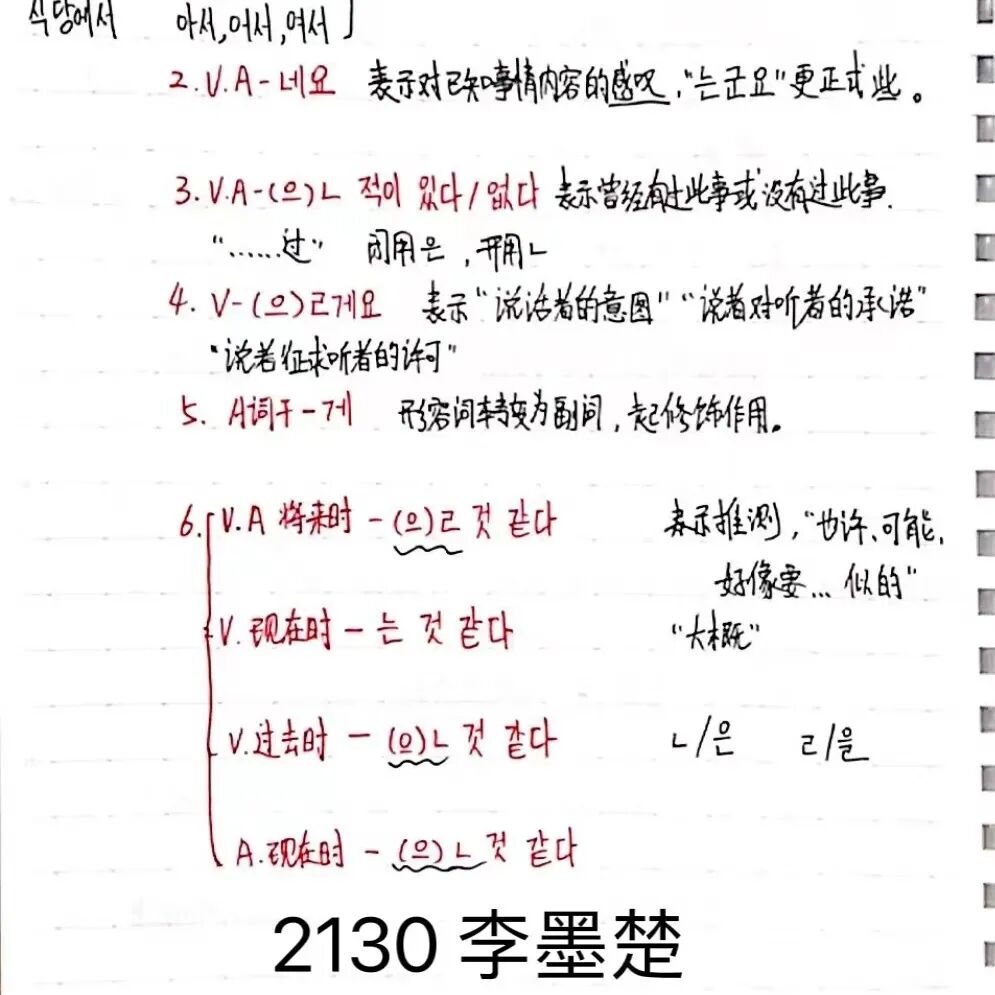 식당에서 아서,어서,여서]
2. V.A-네요 表示对已知事情内容的感叹,"는군요"更正式些。
3. V.A-(으)ㄴ 적이 있다/없다 表示曾经有过此事或没有过此事.
"......过" 闭用은,开用ㄴ
4. V-(으)ㄹ게요 表示"说话者的意图""说者对听者的承诺"
"说者征求听者的许可"
5. A词干-게 形容词转变为副词,起修饰作用。
6. V.A 将来时 -(으)ㄹ 것 같다 表示推测,"也许、可能,
好像要... 似的"
V. 现在时 - 는 것 같다 "大概"
V. 过去时 - (으)ㄴ 것 같다 ㄴ/은 ㄹ/을
A. 现在时 - (으)ㄴ 것 같다
2130 李墨楚